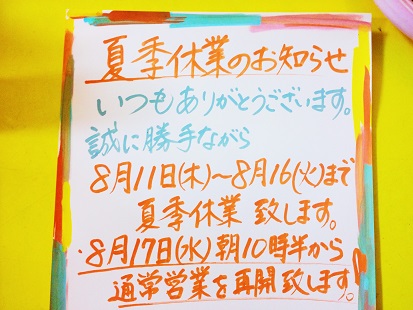 夏季休業のお知らせ
いつもありがとうございます。
誠に勝手ながら
8月11日(木)～8月16(火)まで
夏季休業 致します。
・8月17日(水)朝10時半から
通常営業を再開致します!